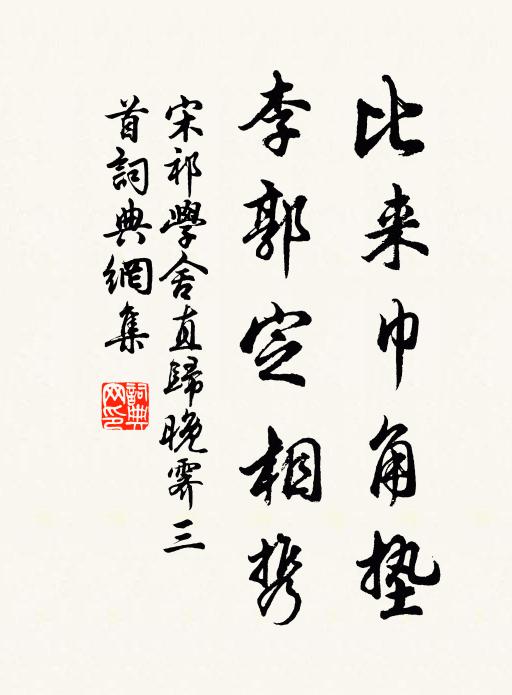 比来巾角垫
李郭定相携
宋祁學舍直歸晚霽三
首詞典網集
詞典網印